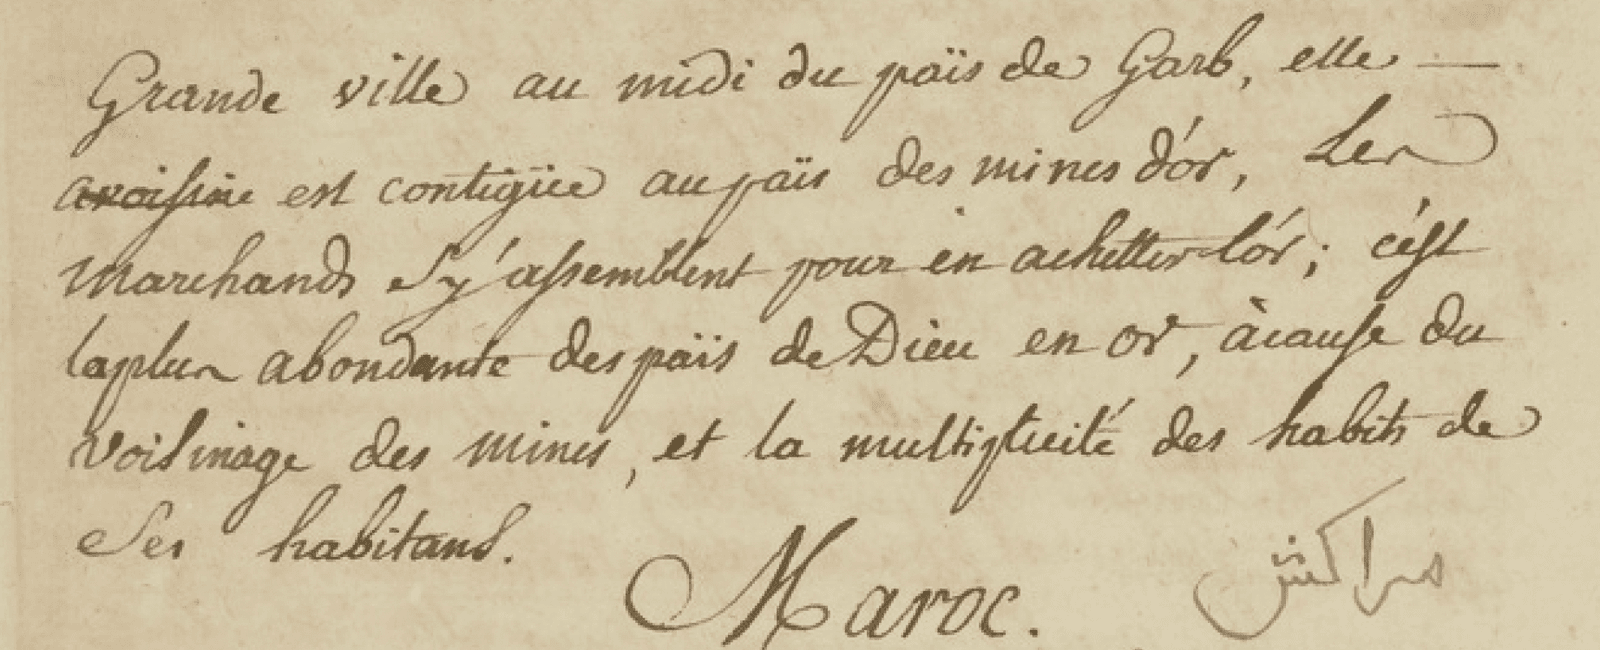 Grande ville au midi du païs de Garb, elle —
avoisine est contigüe au païs des mines d'or, Les
marchands s'y assemblent pour en achetter l'or; c'est
la plus abondante des païs de Dieu en or, à cause du
voisinage des mines, et la multiplicité des habits de
Ses habitans.
Maroc. مراكش